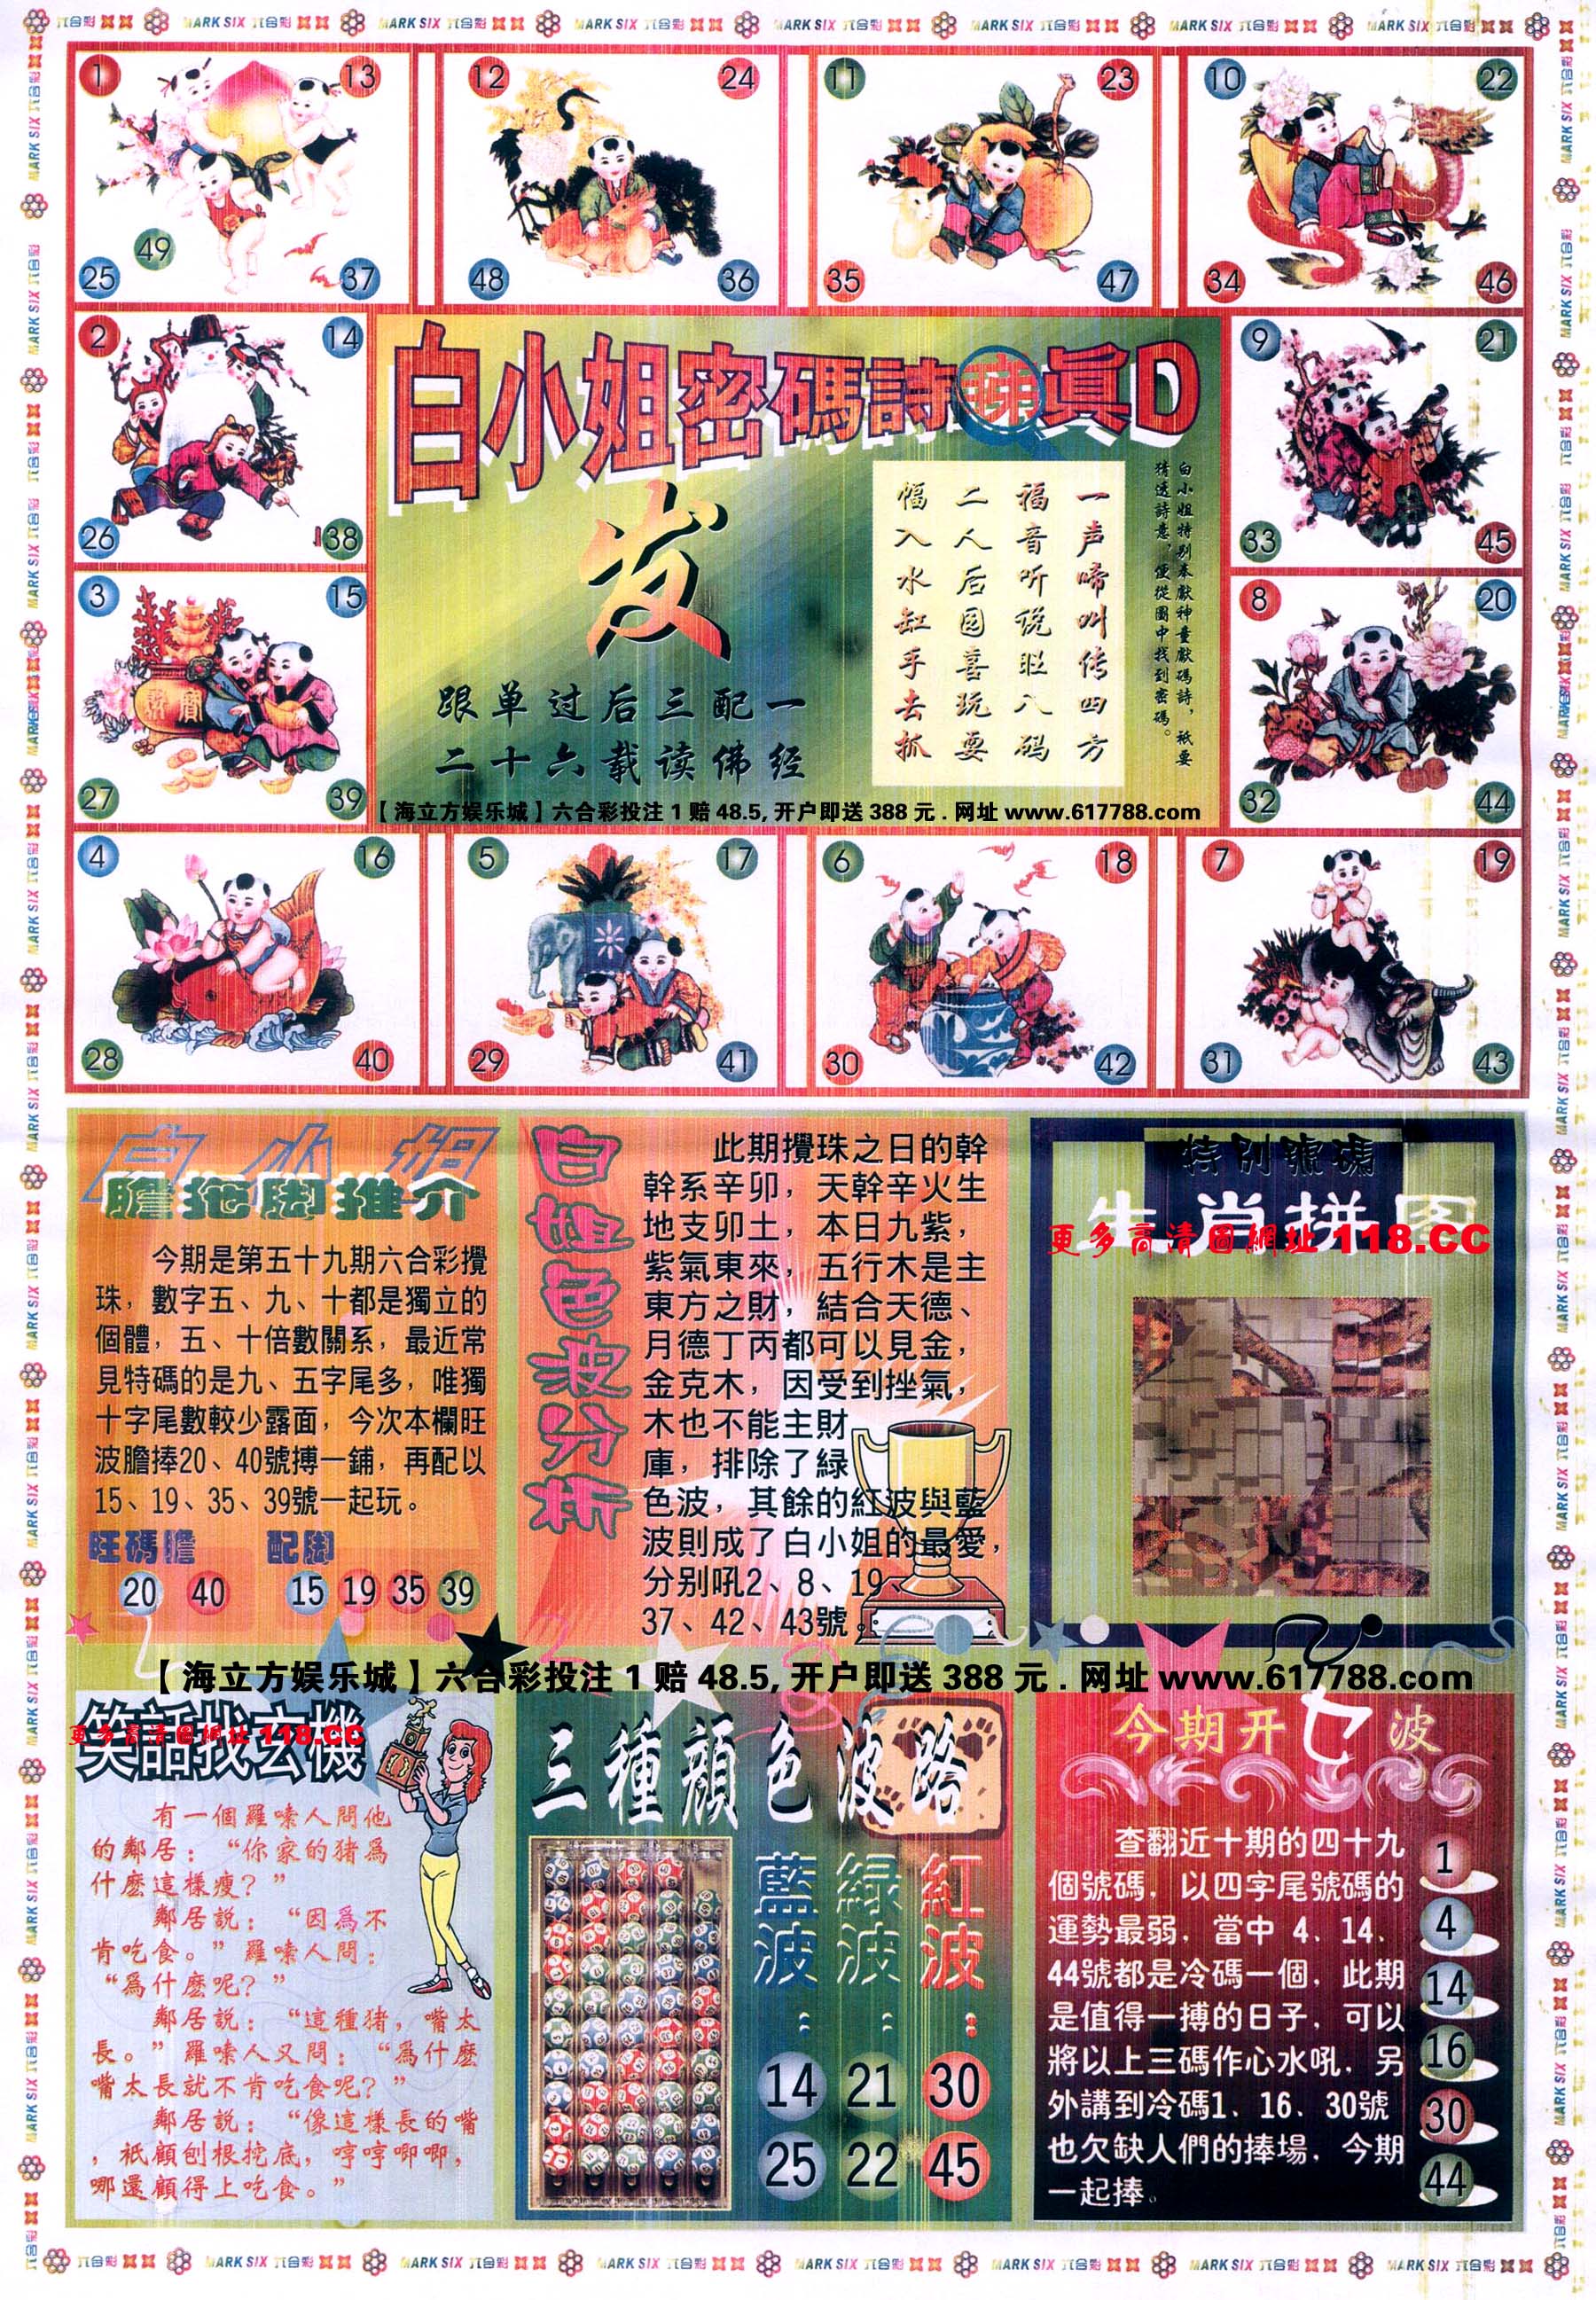 MARK SIX 六合彩
1 13
49
25 37
12 24
48 36
11 23
35 47
10 22
34 46
2 14
26 38
白小姐密碼詩 尋真D
发
跟单过后三配一
二十六载读佛经
白小姐特别奉獻神童獻碼詩，祇要
猜透詩意，便從圖中找到密碼。
一声啼叫传四方
福音听说旺八码
二人后园喜玩耍
幅入水缸手去抓
【海立方娱乐城】六合彩投注 1 赔 48.5, 开户即送 388 元 . 网址 www.617788.com
9 21
33 45
3 15
27 39
8 20
32 44
4 16
28 40
5 17
29 41
6 18
30 42
7 19
31 43
白小姐
膽拖脚推介
今期是第五十九期六合彩攪
珠，數字五、九、十都是獨立的
個體，五、十倍數關系，最近常
見特碼的是九、五字尾多，唯獨
十字尾數較少露面，今次本欄旺
波膽捧20、40號搏一鋪，再配以
15、19、35、39號一起玩。
旺碼膽 配脚
20 40 15 19 35 39
白姐色波分析
此期攪珠之日的幹
幹系辛卯，天幹辛火生
地支卯土，本日九紫，
紫氣東來，五行木是主
東方之財，結合天德、
月德丁丙都可以見金，
金克木，因受到挫氣，
木也不能主財
庫，排除了緑
色波，其餘的紅波與藍
波則成了白小姐的最愛，
分别吼2、8、19
37、42、43號。
特别號碼
生肖拼图
更多高清圖網址 118.CC
【海立方娱乐城】六合彩投注 1 赔 48.5, 开户即送 388 元 . 网址 www.617788.com
笑話找玄機
更多高清圖網址 118.CC
有一個羅嗦人問他
的鄰居：“你家的猪爲
什麽這樣瘦？”
鄰居説：“因爲不
肯吃食。”羅嗦人問：
“爲什麽呢？”
鄰居説：“這種猪，嘴太
長。”羅嗦人又問：“爲什麽
嘴太長就不肯吃食呢？”
鄰居説：“像這樣長的嘴
，祇顧刨根挖底，哼哼唧唧，
哪還顧得上吃食。”
三種顔色波路
藍波： 緑波： 紅波：
14 21 30
25 22 45
今期开七波
查翻近十期的四十九
個號碼，以四字尾號碼的
運勢最弱，當中 4、14、
44號都是冷碼一個，此期
是值得一搏的日子，可以
將以上三碼作心水吼，另
外講到冷碼1、16、30號
也欠缺人們的捧場，今期
一起捧。
1
4
14
16
30
44